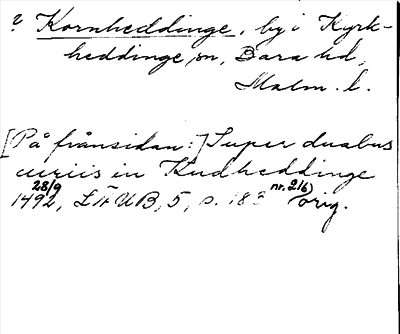 ? Kornheddinge, by i Kyrk-
heddinge sn, Bara hd,
Malm. l.
[På frånsidan:] Super duabus
curiis in Kudheddinge
28/9
1492, LÄUB, 5, s. 183 nr. 216) orig.